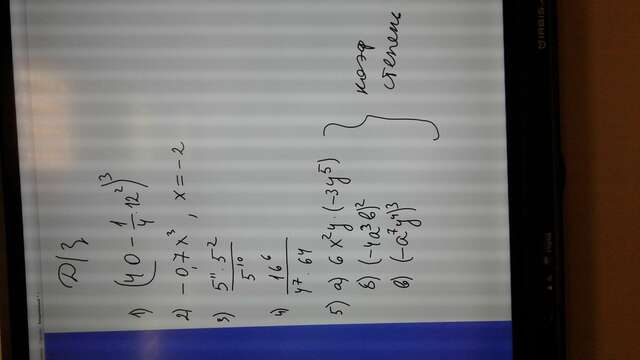 Д/З
1) (40 - 1/4 · 12²)³
2) -0,7x³, x = -2
3) 5¹¹ · 5² / 5¹⁰
4) 16⁶ / 4⁷ · 64
5) а) 6x²y · (-3y⁵)
б) (-4a³b)²
в) (-a⁷y⁴)³
коэф
степень
IRBIS